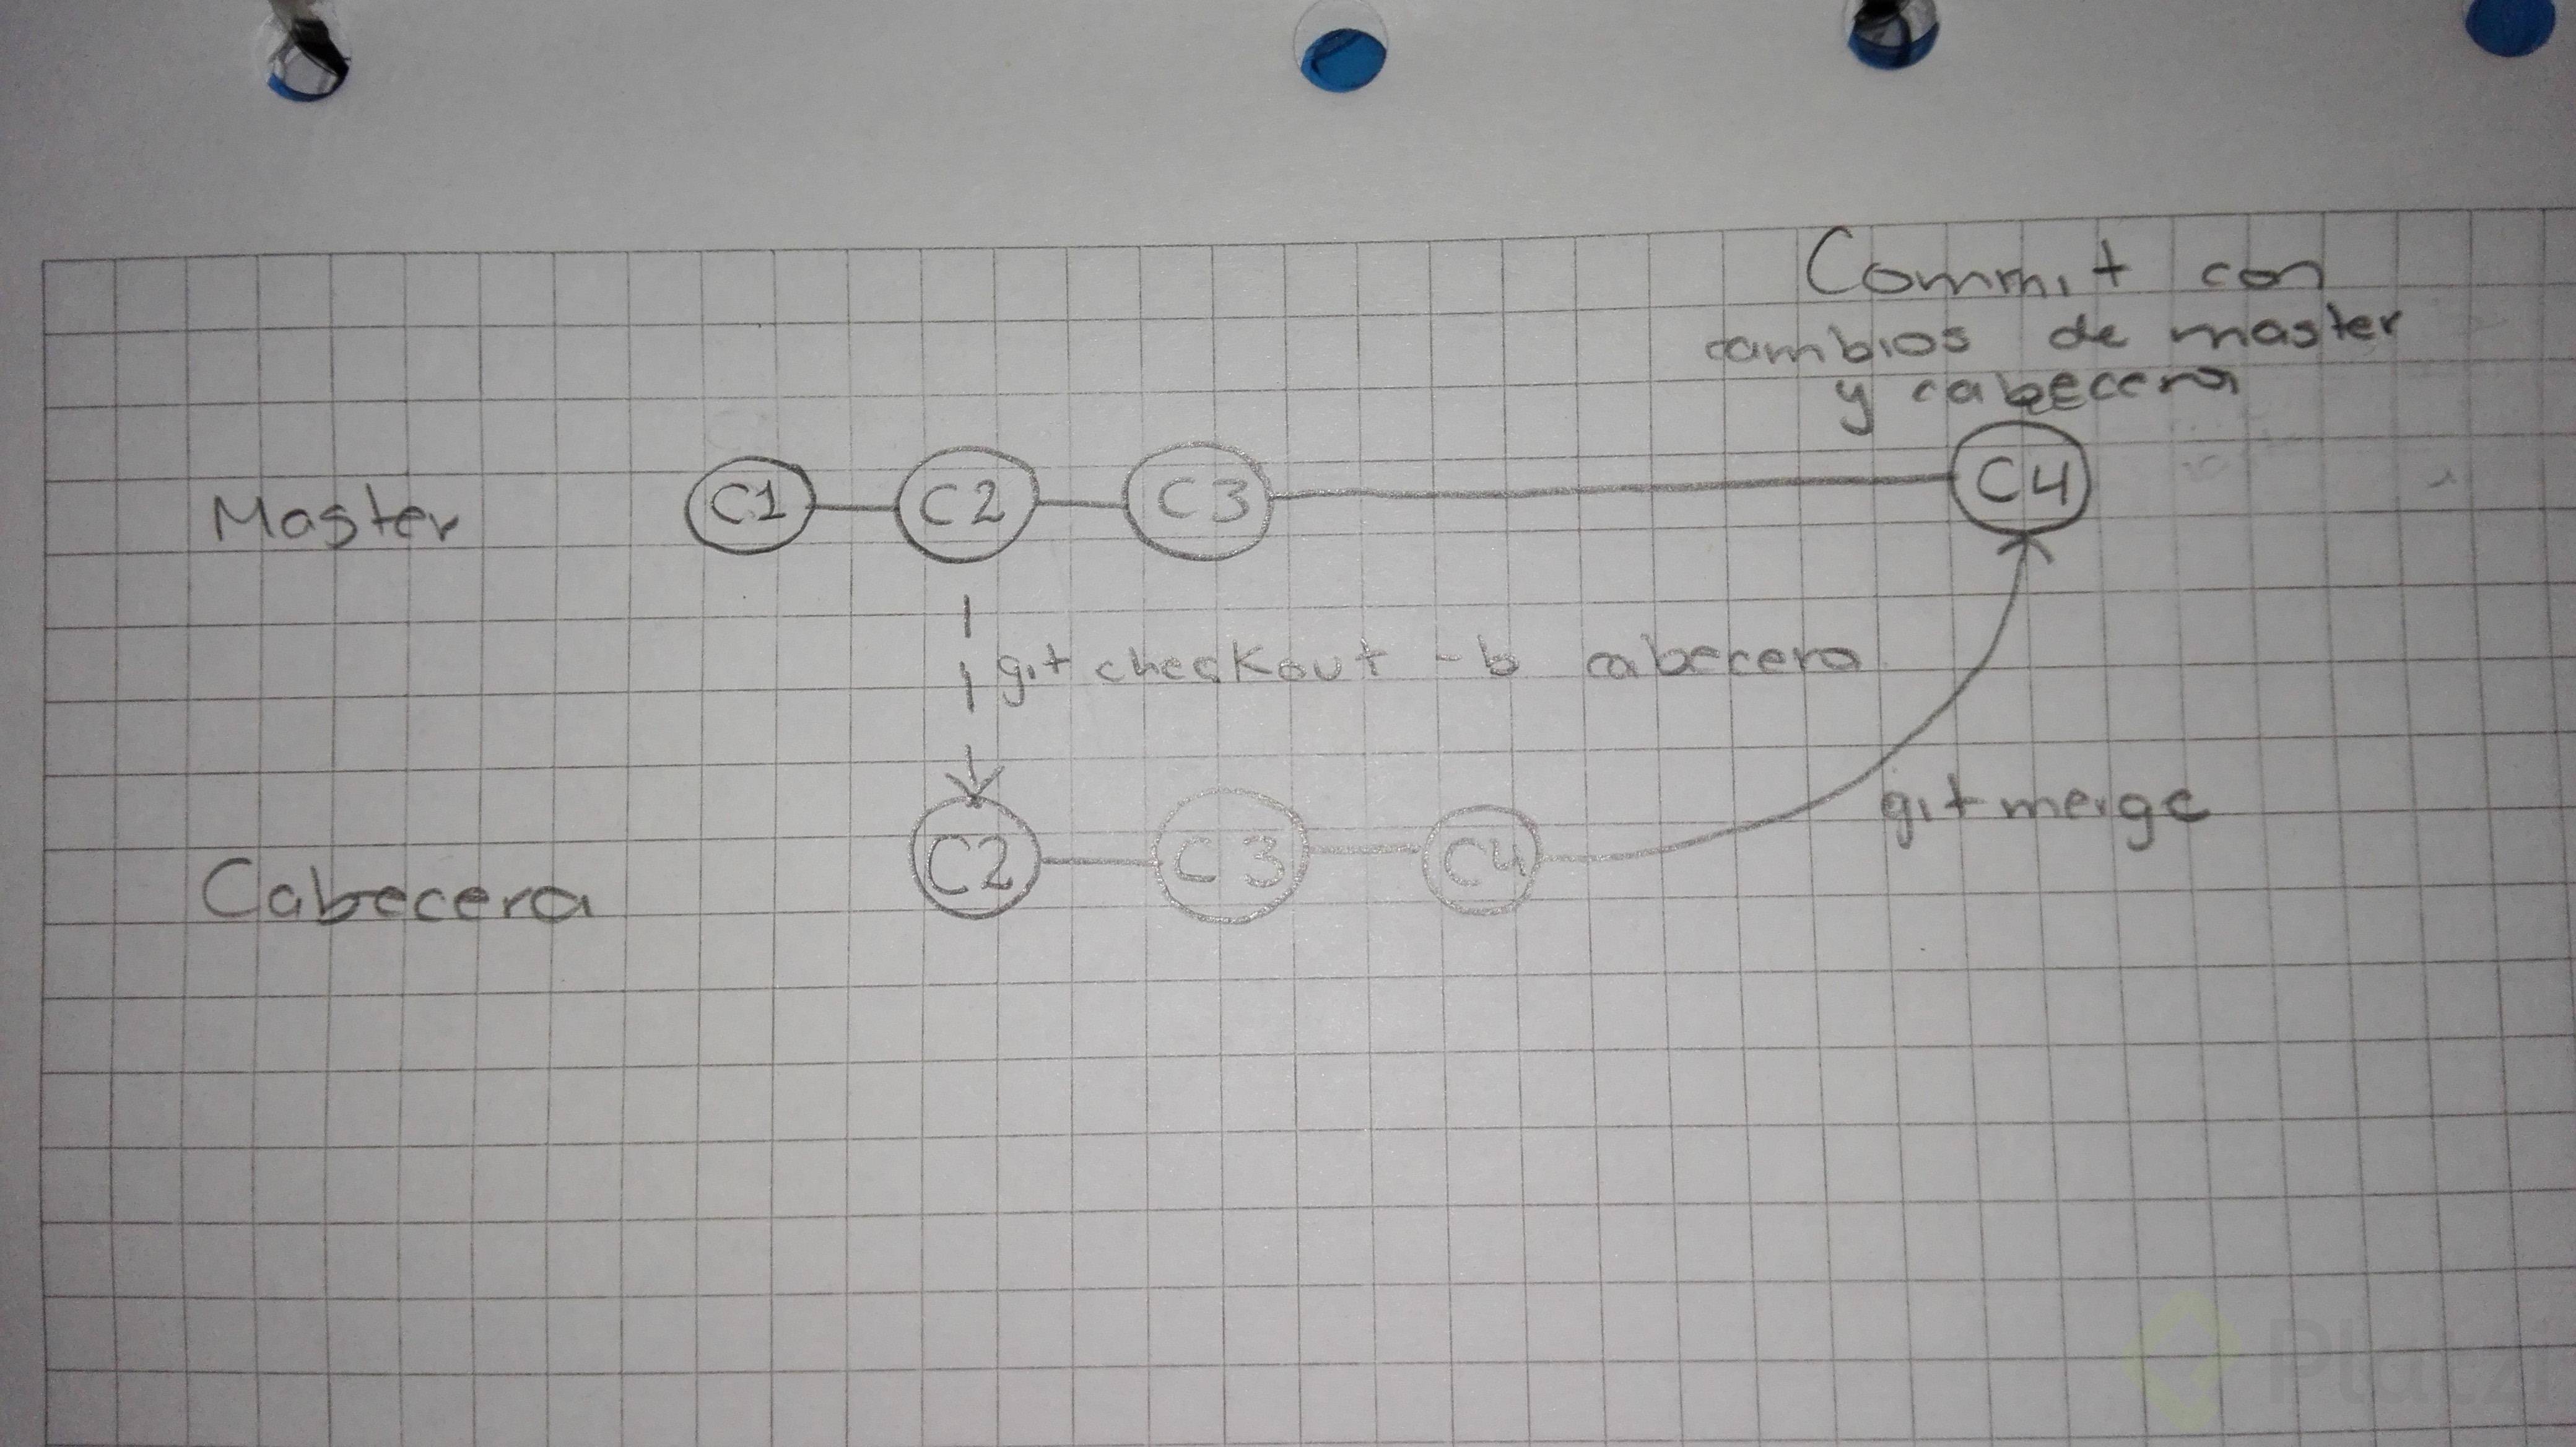 Commit con
cambios de master
y cabecera
Master C1 C2 C3 C4
git checkout -b cabecera
git merge
Cabecera C2 C3 C4
Platzi